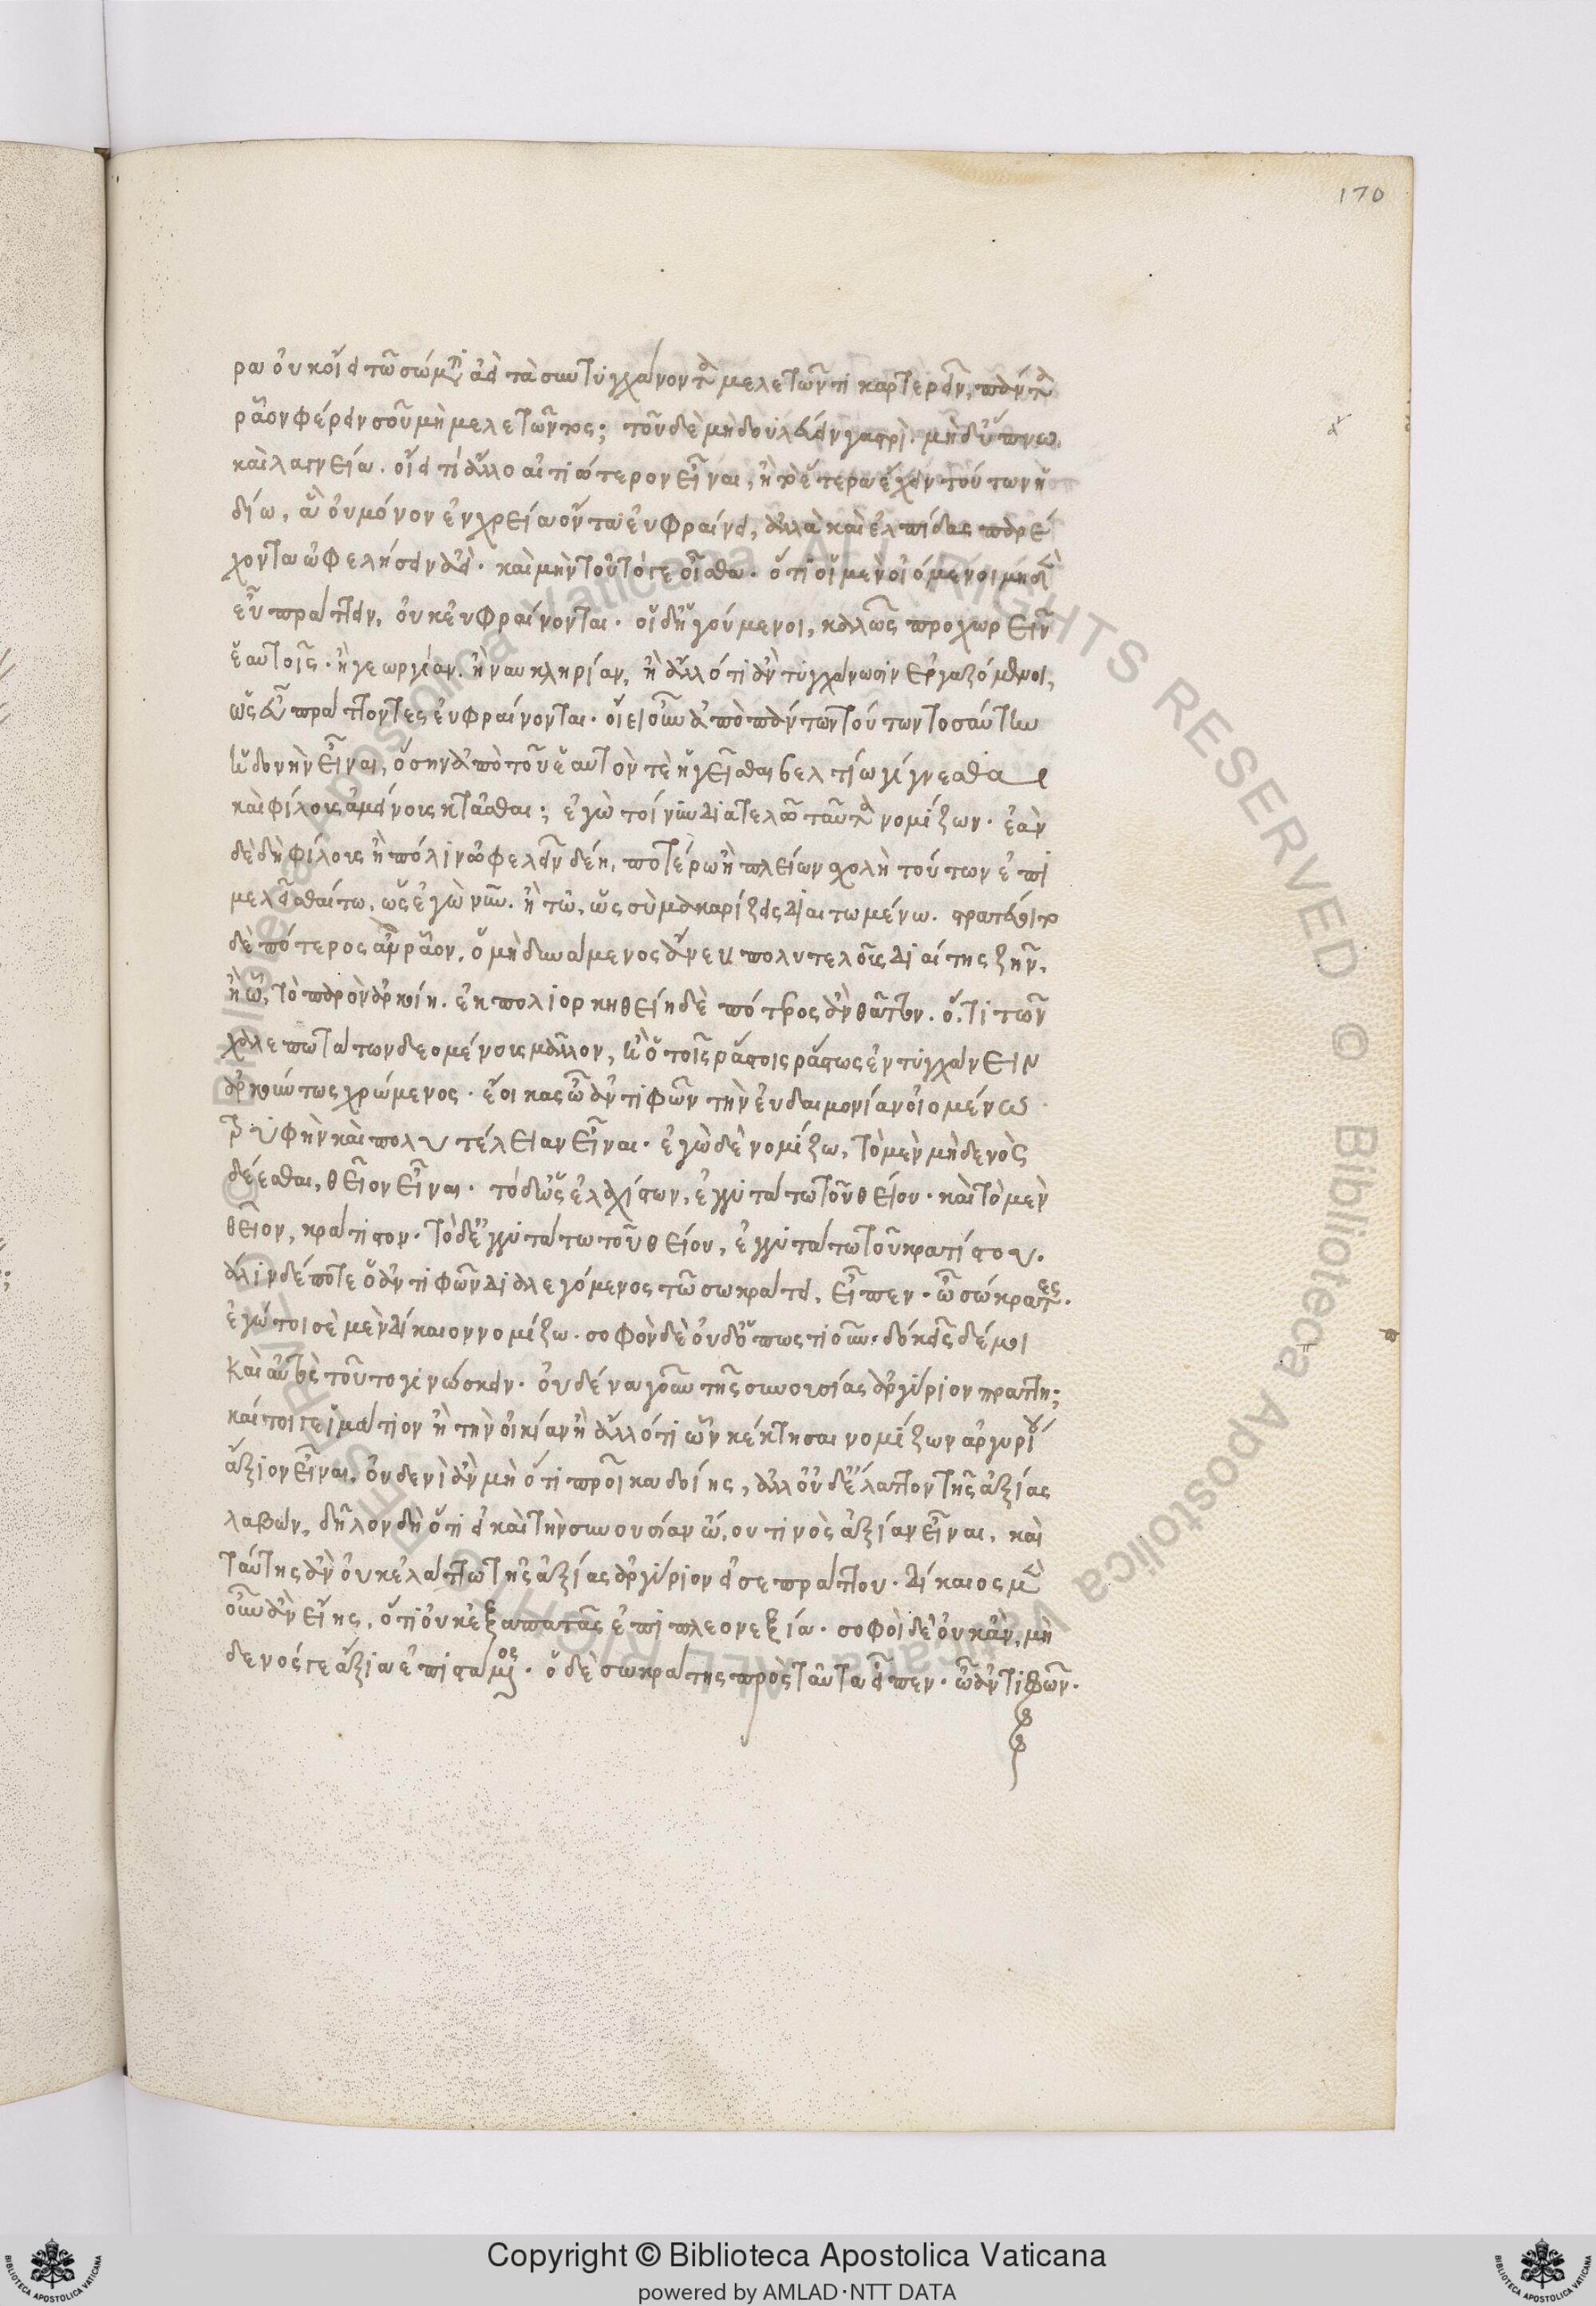 170
ρα οὐκ οἴει τῷ σώματι ἀεὶ τὰ συντυγχάνοντα μελετῶντι καρτερεῖν, πάντα
ρᾷον φέρειν σοῦ μὴ μελετῶντος; τοῦ δὲ μὴ δουλεύειν γαστρὶ. μὴ δ' ὕπνω
καὶ λαγνεία. οἴει τί ἄλλο αἰτιώτερον εἶναι, ἢ τὸ ἕτερα ἔχειν τούτων ἡ
δίω, ἃ οὐ μόνον ἐν χρεία ὄντα εὐφραίνει, ἀλλὰ καὶ ἐλπίδας παρέ
χοντα ὠφελήσειν ἀεὶ. καὶ μὴν τοῦτό γε οἶσθα. ὅτι οἱ μὲν οἰόμενοι μηδὲν
εὖ πράττειν, οὐκ εὐφραίνονται. οἱ δὲ ἡγούμενοι, καλῶς προχωρεῖν
ἑαυτοῖς. ἢ γεωργίαν. ἢ ναυκληρίαν, ἢ ἄλλ' ὅτι ἂν τυγχάνωσιν ἐργαζόμενοι,
ὡς εὖ πράττοντες εὐφραίνονται. οἴει οὖν ἀπὸ πάντων τούτων τοσαύτην
ἡδονὴν εἶναι, ὅσην ἀπὸ τοῦ ἑαυτόν τε ἡγεῖσθαι βελτίω γίγνεσθαι
καὶ φίλους ἀμείνους κτᾶσθαι; ἐγὼ τοίνυν διατελῶ ταῦτα νομίζων. ἐὰν
δὲ δὴ φίλους ἢ πόλιν ὠφελεῖν δέη, ποτέρω ἡ πλείων σχολὴ τούτων ἐπι
μελεῖσθαί τω, ὡς ἐγὼ νῦν. ἢ τῶ, ὡς σὺ μακαρίζεις διαιτωμένω. στρατεύοιτο
δὲ πότερος ἂν ρᾷον, ὁ μὴ δυνάμενος ἄνευ πολυτελοῦς διαίτης ζῆν,
ἢ ὧ, τὸ παρὸν ἀρκοίη. ἐκπολιορκηθείη δὲ πότερος ἂν θᾶττον. ὅ, τι τῶν
χαλεπωτάτων δεόμενος μᾶλλον, ἢ ὁ τοῖς ράστοις ράστως ἐντυγχάνειν
ἀρκούντως χρώμενος. ἔοικας ὦ ἀντιφῶν τὴν εὐδαιμονίαν οἰομένω
τρυφὴν καὶ πολυτέλειαν εἶναι. ἐγὼ δὲ νομίζω, τὸ μὲν μηδενὸς
δέεσθαι, θεῖον εἶναι. τό δ' ὡς ἐλαχίστων, ἐγγυτάτω τοῦ θείου. καὶ τὸ μὲν
θεῖον, κράτιστον. τὸ δὲ ἐγγυτάτω τοῦ θείου, ἐγγυτάτω τοῦ κρατίστου.
πάλιν δέ ποτε ὁ ἀντιφῶν διαλεγόμενος τῷ σωκράτει, εἶπεν. ὦ σώκρατες.
ἐγώ τοι σὲ μὲν δίκαιον νομίζω. σοφὸν δὲ οὐδ' ὁπωστιοῦν. δοκεῖς δέ μοι
καὶ αὐτὸς τοῦτο γινώσκειν. οὐδένα γοῦν τῆς συνουσίας ἀργύριον πράττη;
καίτοι γε ἱμάτιον ἢ τὴν οἰκίαν ἢ ἄλλό τι ὧν κέκτησαι νομίζων ἀργυρίου
ἄξιον εἶναι, οὐδενὶ ἂν μὴ ὅτι προῖκα δοίης, ἀλλ' οὐδ' ἔλαττον τῆς ἀξίας
λαβών, δῆλον δὴ ὅτι εἰ καὶ τὴν συνουσίαν ὤ,ου τινὸς ἀξίαν εἶναι, καὶ
ταύτης ἂν οὐκ ἔλαττω τῆς ἀξίας ἀργύριον εἰσεπράττου. δίκαιος μὲν
οὖν ἂν εἴης, ὅτι οὐκ ἐξαπατᾷς ἐπὶ πλεονεξία. σοφὸς δὲ οὐκ ἄν, μη
δενός γε ἄξια ἐπιστάμενος. ὁ δὲ σωκράτης πρὸς ταῦτα εἶπεν. ὦ ἀντιφῶν.
Copyright © Biblioteca Apostolica Vaticana
powered by AMLAD·NTT DATA